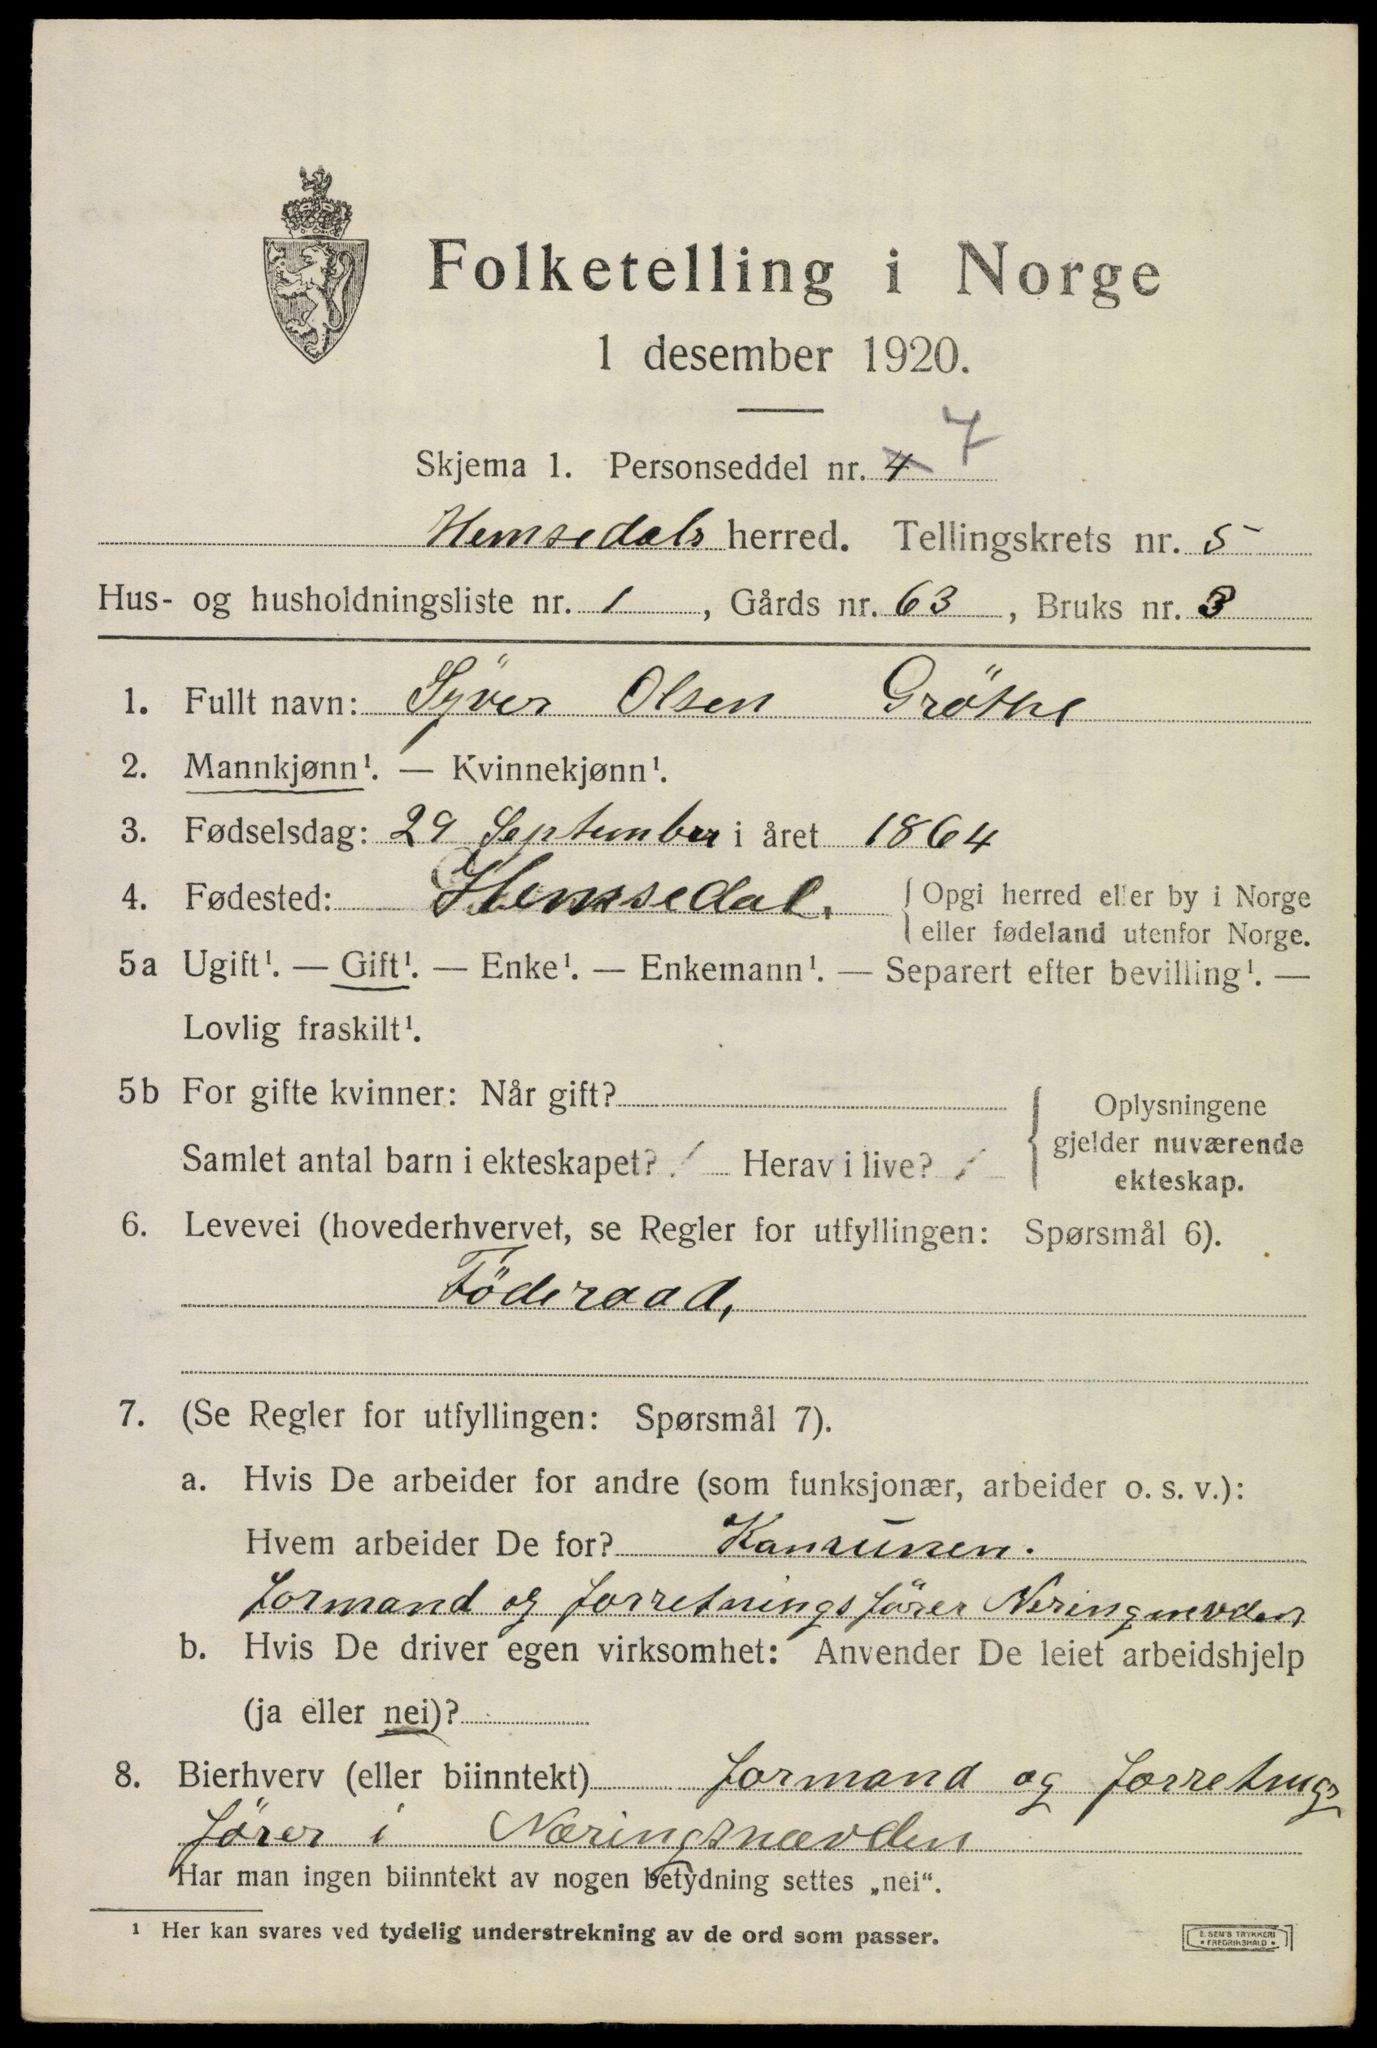 Folketelling i Norge
1 desember 1920.
Skjema 1. Personseddel nr. 4 7
Hemsedals herred. Tellingskrets nr. 5
Hus- og husholdningsliste nr. 1, Gårds nr. 63, Bruks nr. 3
1. Fullt navn: Syver Olsen Gröthe
2. Mannkjønn¹. — Kvinnekjønn¹.
3. Fødselsdag: 29 September i året 1864
4. Fødested: Hemsedal. { Opgi herred eller by i Norge
eller fødeland utenfor Norge.
5a Ugift¹. — Gift¹. — Enke¹. — Enkemann¹. — Separert efter bevilling¹. —
Lovlig fraskilt¹.
5b For gifte kvinner: Når gift?
Samlet antal barn i ekteskapet? / Herav i live? /
Oplysningene
gjelder nuværende
ekteskap.
6. Levevei (hovederhvervet, se Regler for utfyllingen: Spørsmål 6).
Föderaad,
7. (Se Regler for utfyllingen: Spørsmål 7).
a. Hvis De arbeider for andre (som funksjonær, arbeider o. s. v.):
Hvem arbeider De for?
formand og forretningsfører
b. Hvis De driver egen virksomhet: Anvender De leiet arbeidshjelp
(ja eller nei)?
8. Bierhverv (eller biinntekt) formand og forretnings
fører i Næringsnævden
Har man ingen biinntekt av nogen betydning settes „nei“.
¹ Her kan svares ved tydelig understrekning av de ord som passer.
E. SEM'S TRYKKERI
• FREDRIKSHALD •